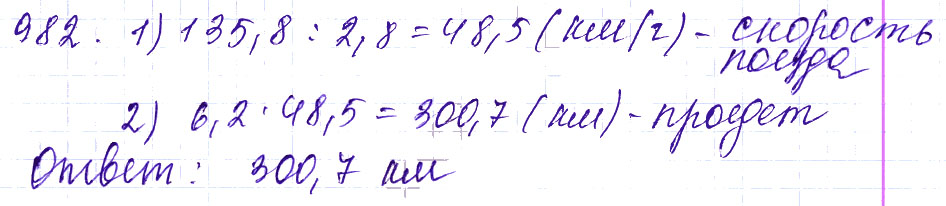 982. 1) 135,8 : 2,8 = 48,5 (км/г) - скорость
поезда
2) 6,2 · 48,5 = 300,7 (км) - проедет
Ответ: 300,7 км